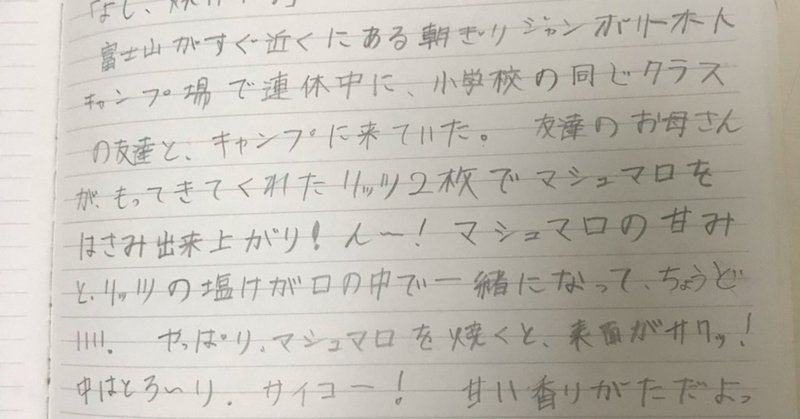 「よし、焼けた」
富士山がすぐ近くにある朝ぎりジャンボリーオート
キャンプ場で連休中に、小学校の同じクラス
の友達と、キャンプに来ていた。 友達のお母さん
が、もってきてくれたリッツ2枚でマシュマロを
はさみ出来上がり!ん〜!マシュマロの甘み
と、リッツの塩けが口の中で一緒になって、ちょうど
いい。 やっぱり、マシュマロを焼くと、表面がサクッ!
中はとろ〜り。サイコー! 甘い香りがただよっ